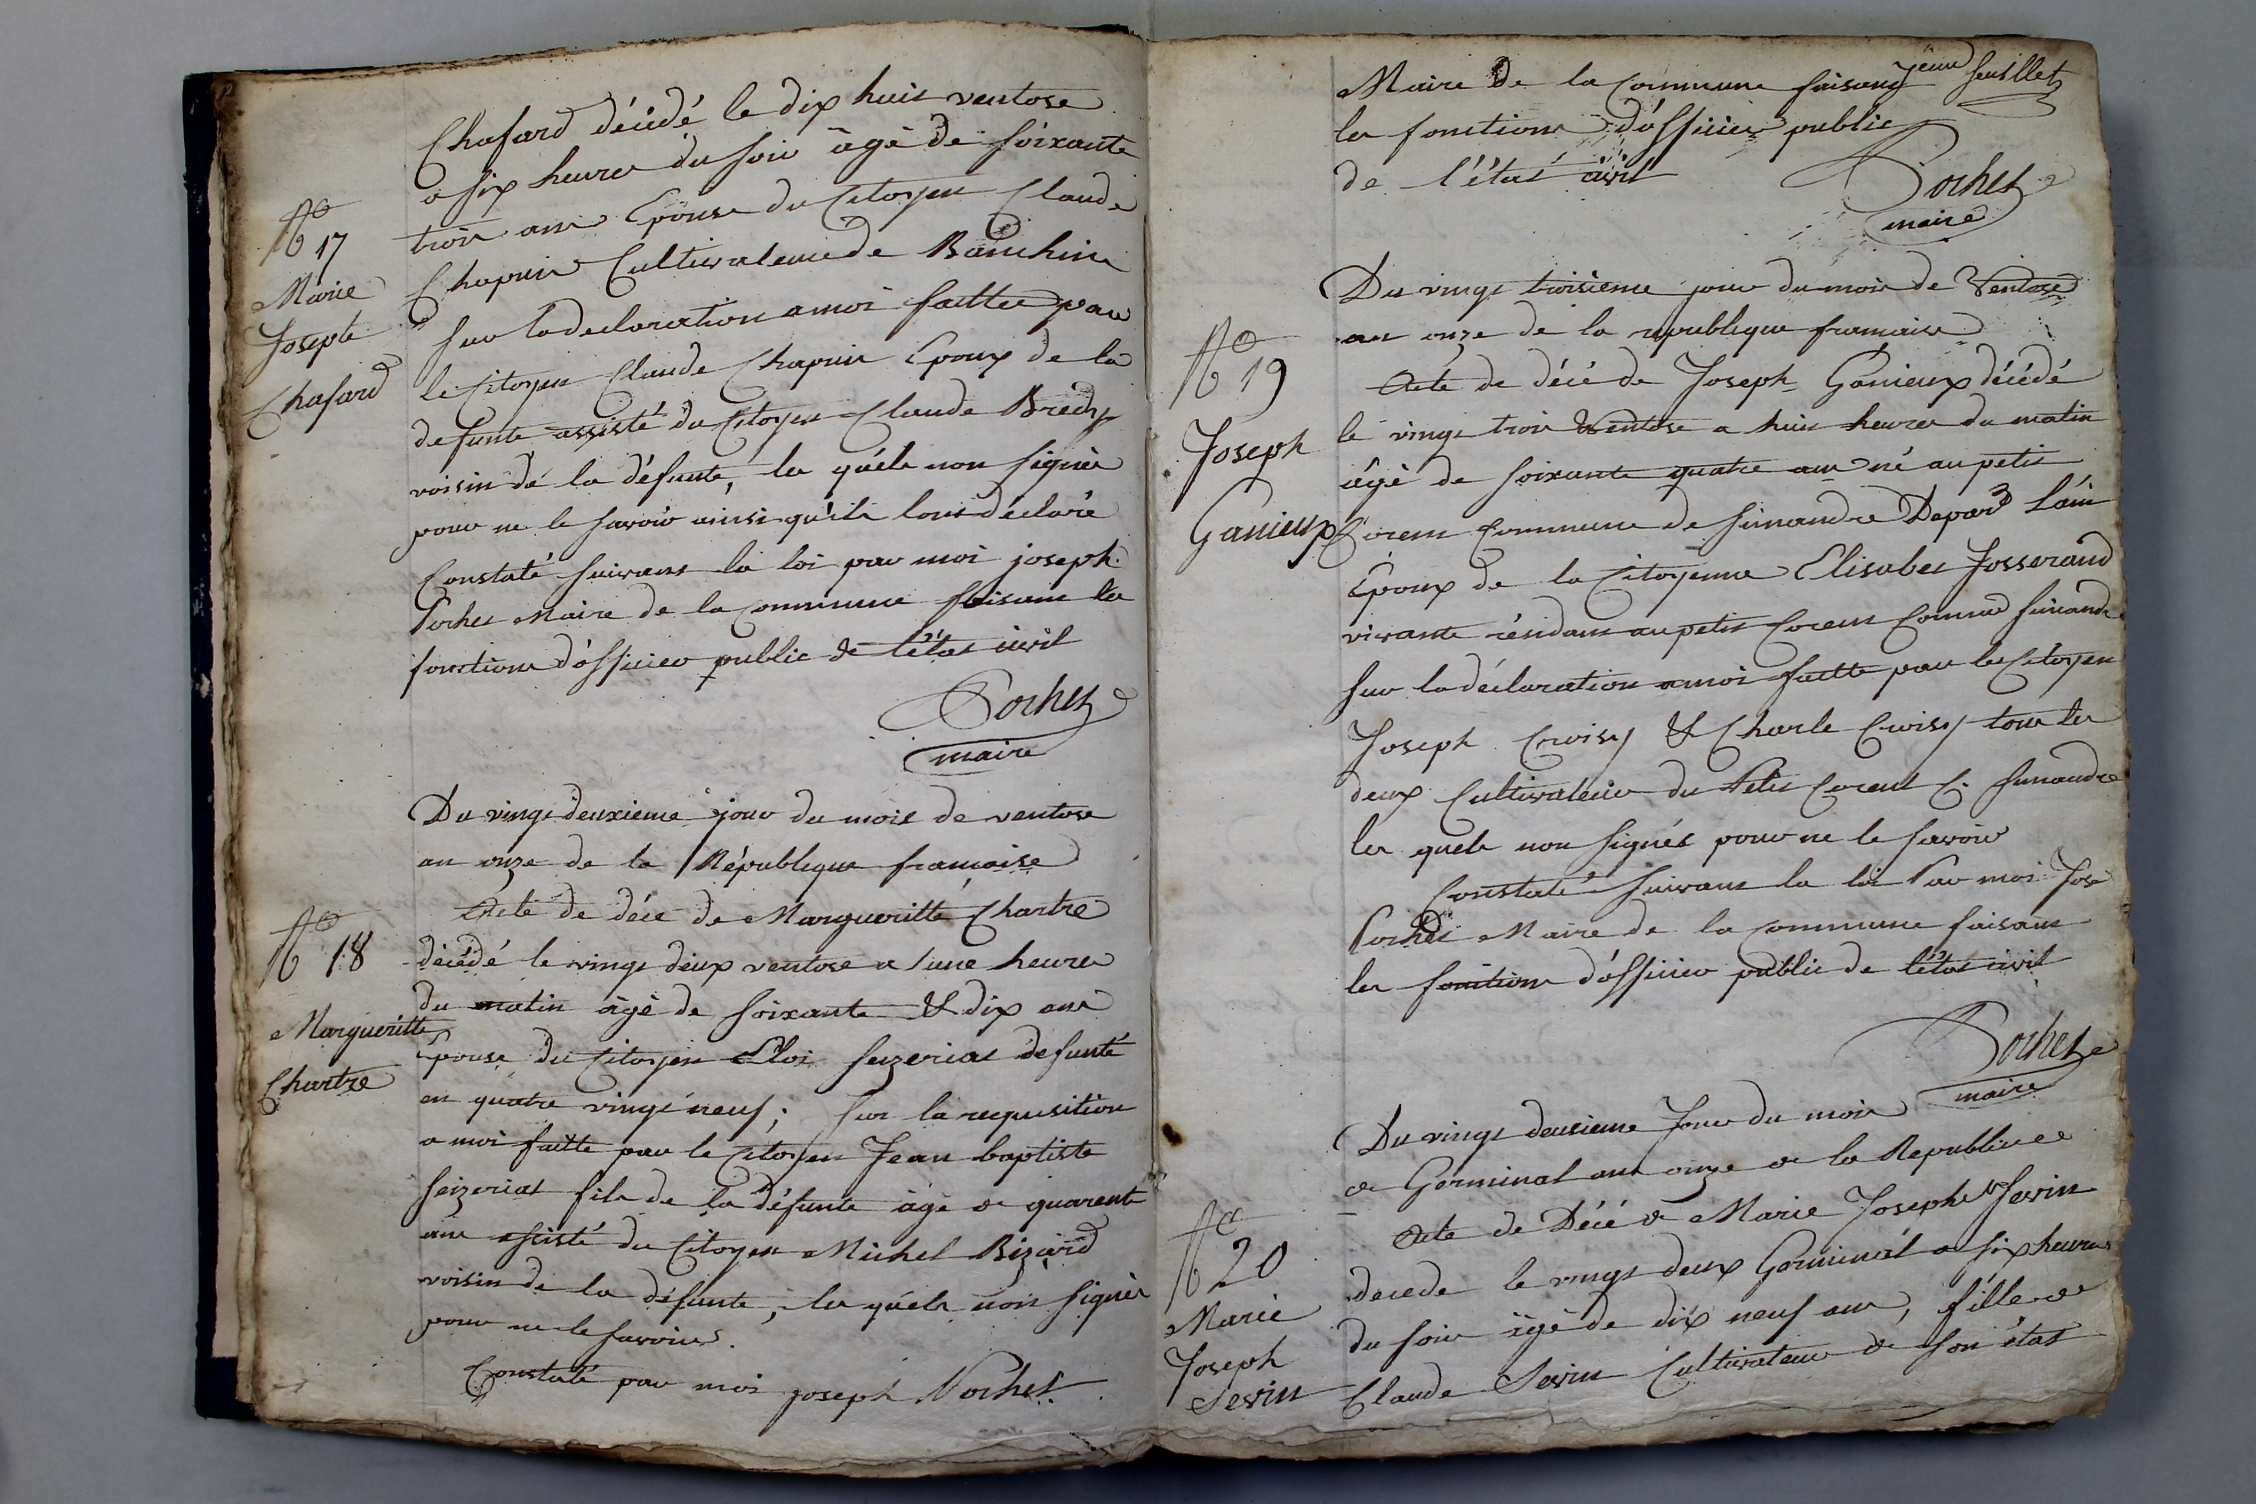 Chafard décédé le dix huit ventose
a six heures du soir âgé de soixante
trois ans Epouse du Citoyen Claude
Chapuis Cultivateur de
sur la declaration a moi faitte par
le Citoyen Claude Chapuis Epoux de la
defunte assisté du Citoyen Claude
voisin de la défunte, les quels non signés
pour ne le savoir ainsi qu'ils lont déclaré
Constaté suivant la loi par moi joseph
Pochet Maire de la Commune faisant les
fonctions d'officier public de l'état civil
Pochet
maire
N° 17
Marie
Joseph
Chafard
Du vingt deuxieme jour du mois de ventose
an onze de la République francaise
Acte de décé de Margueritte Chartre
décédé le vingt deux ventose a une heure
du matin âgé de soixante & dix ans
Epouse du Citoyen Eloi Seizeriat defunte
en quatre vingt neuf ; sur la requisition
a moi faitte par le Citoyen Jean baptiste
Seizeriat fils de la défunte âgé de quarente
ans assisté du Citoyen Michel Bizard
voisin de la défunte, les quels non signés
pour ne le savoir.
Constaté par moi joseph Pochet
N° 18
Margueritte
Chartre
7eme feuillet
Maire de la Commune faisant
les fonctions d'officier public
de l'état civil
Pochet
maire
Du vingt troisieme jour du mois de Ventose
an onze de la republique francaise
Acte de décé de Joseph Ganieux décédé
le vingt trois Ventose a huit heures du matin
âgé de soixante quatre ans né au petit
Corent Commune de Simandre Depard L'ain
Epoux de la Citoyenne Elisabet Josserand
vivante résidant au petit Corent Comme Simandre
sur la déclaration a moi faitte par les Citoyen
Joseph Croisy & Charle Croisy tous les
deux Cultivateur du Petit Corent C. Simandre
les quels non signés pour ne le savoir
Constaté suivant la loi Par moi Jose
Pochet Maire de la Commune faisant
les fonctions d'officier public de l'état civil
Pochet
maire
N° 19
Joseph
Ganieux
Du vingt deuxieme Jour du mois
de Germinal an onze de la Republique
Acte de Décé de Marie Joseph Sevin
decede le vingt deux Germinal a six heures
du soir âgé de dix neuf ans, fille de
Claude Sevin Cultivateur de son état
N° 20
Marie
Joseph
Sevin